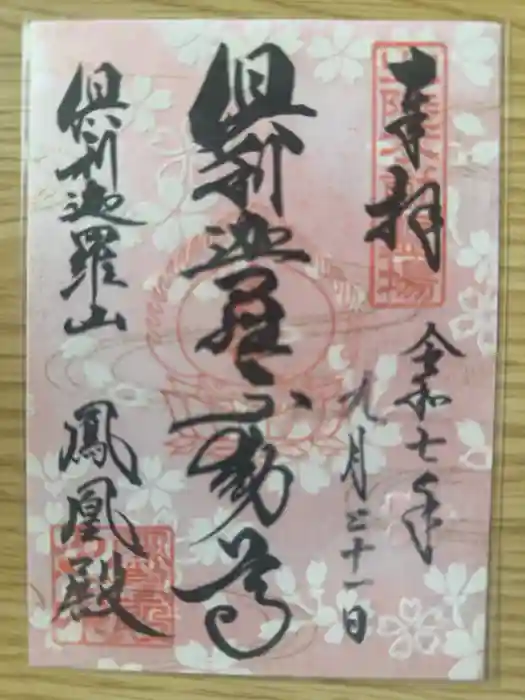 奉拝
令和七年
九月二十一日
倶利迦羅不動尊
倶利迦羅山 鳳凰殿